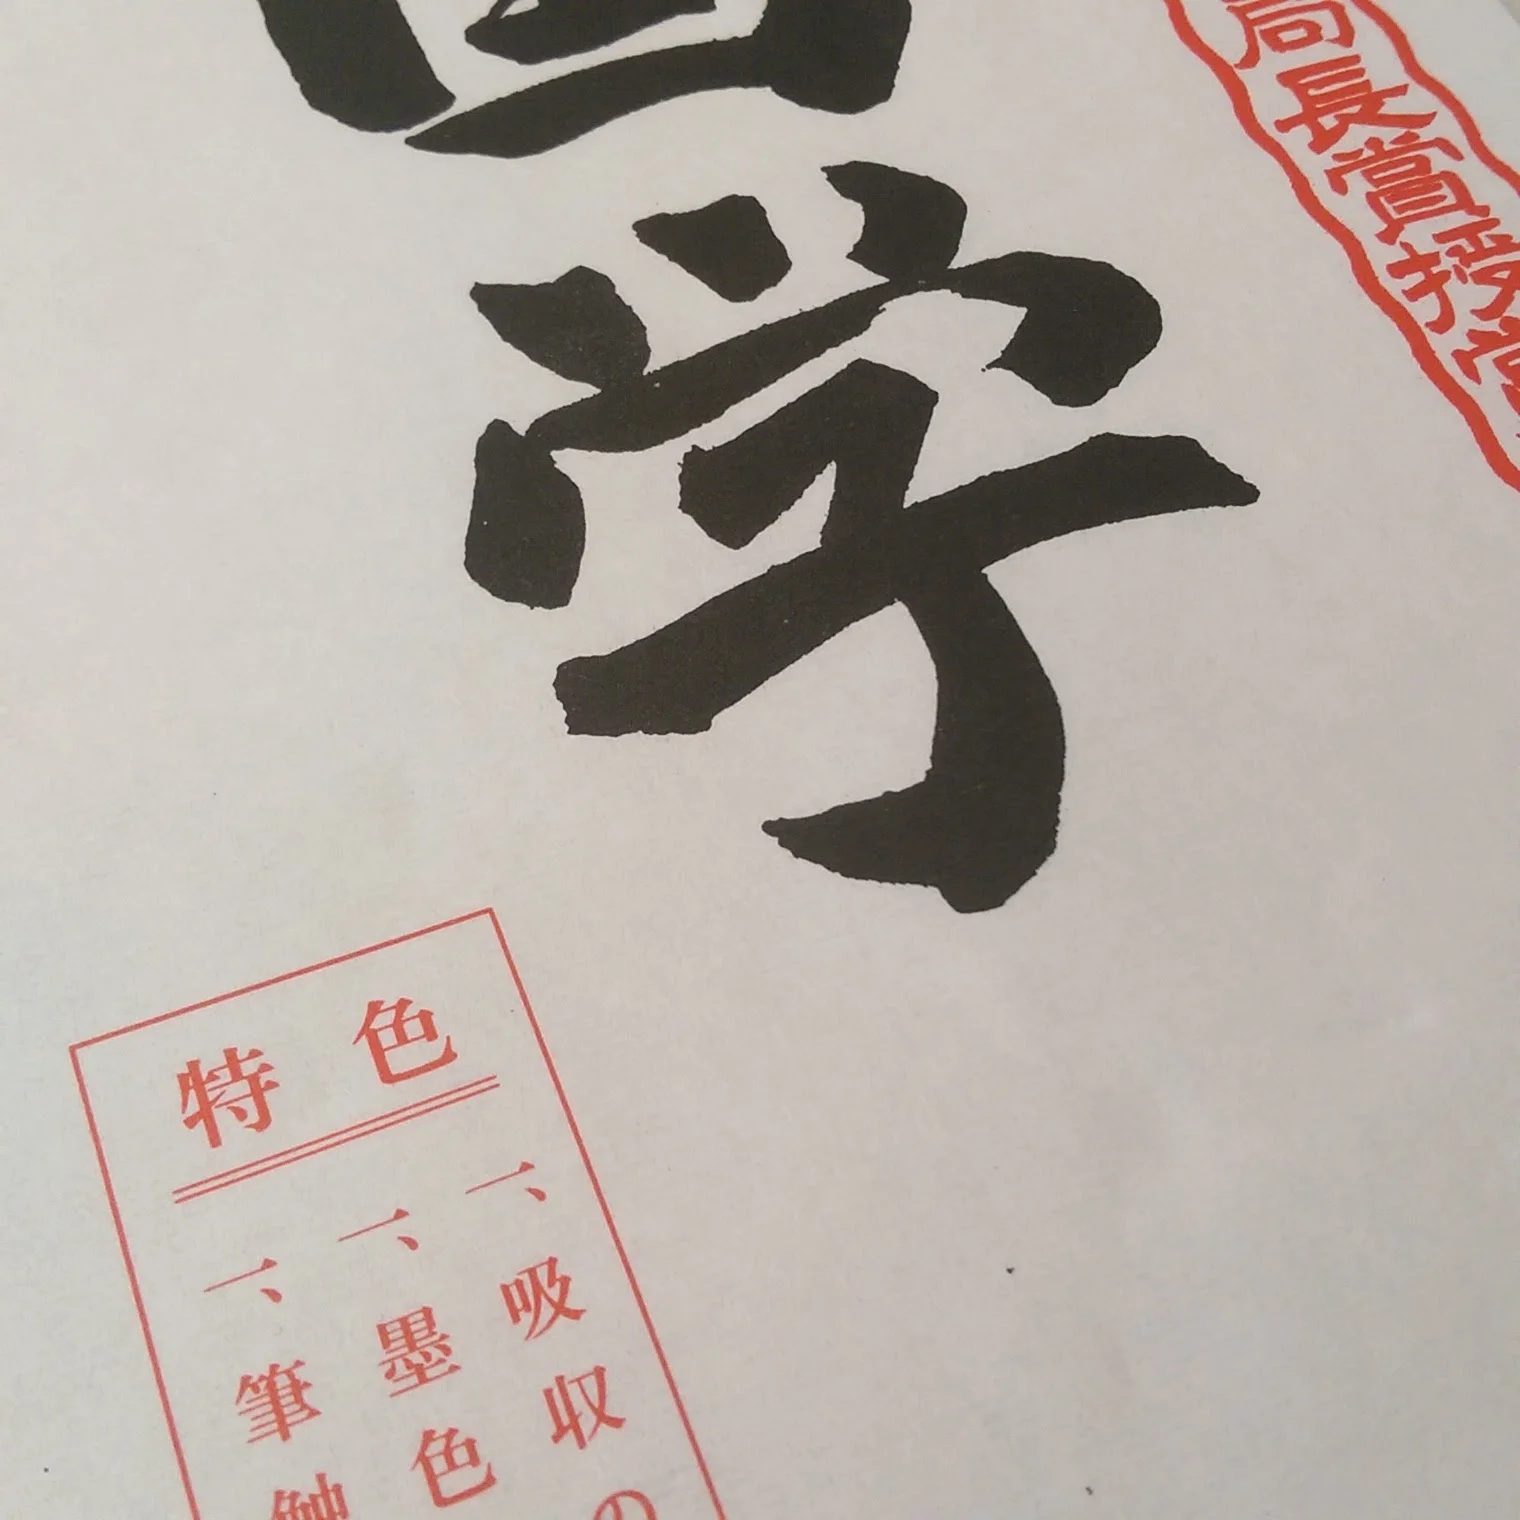 学
局長賞受賞
特色
一、吸収の
一、墨色
一、筆触